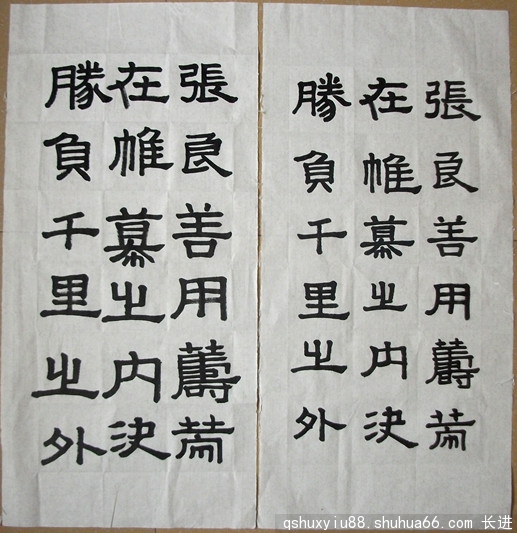 張良善用籌策
在帷幕之內決
勝負千里之外
張良善用籌策
在帷幕之內決
勝負千里之外
qshuxyiu88.shuhua66.com 长进